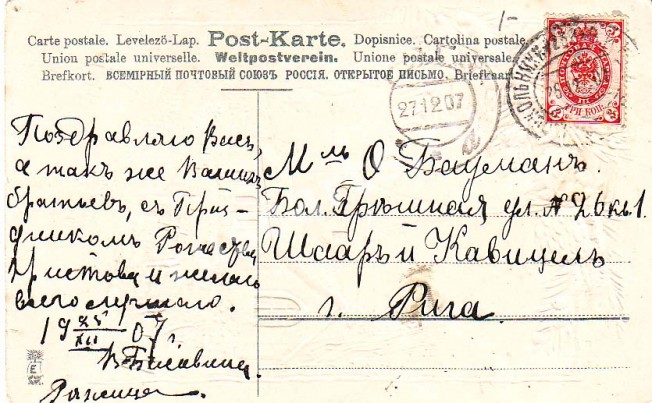 1-
Carte postale. Levelezö-Lap. Post-Karte. Dopisnice. Cartolina postale.
Union postale universelle. Weltpostverein. Unione postale universale.
Brefkort. ВСЕМІРНЫЙ ПОЧТОВЫЙ СОЮЗЪ РОССІЯ. ОТКРЫТОЕ ПИСЬМО. Briefkaart
ТРИ КОП.
3 3
27.12.07
Поздравляю Васъ,
а такъ же Вашихъ
братьевъ, съ Празд-
никомъ Рождества
Христова и желаю
всего лучшаго.
19 25/XII 07 г.
Мль О. Бауманъ.
Бол. Грѣшная ул. № 26 кв 1.
Шааръ и Кавицель
г. Рига.
E